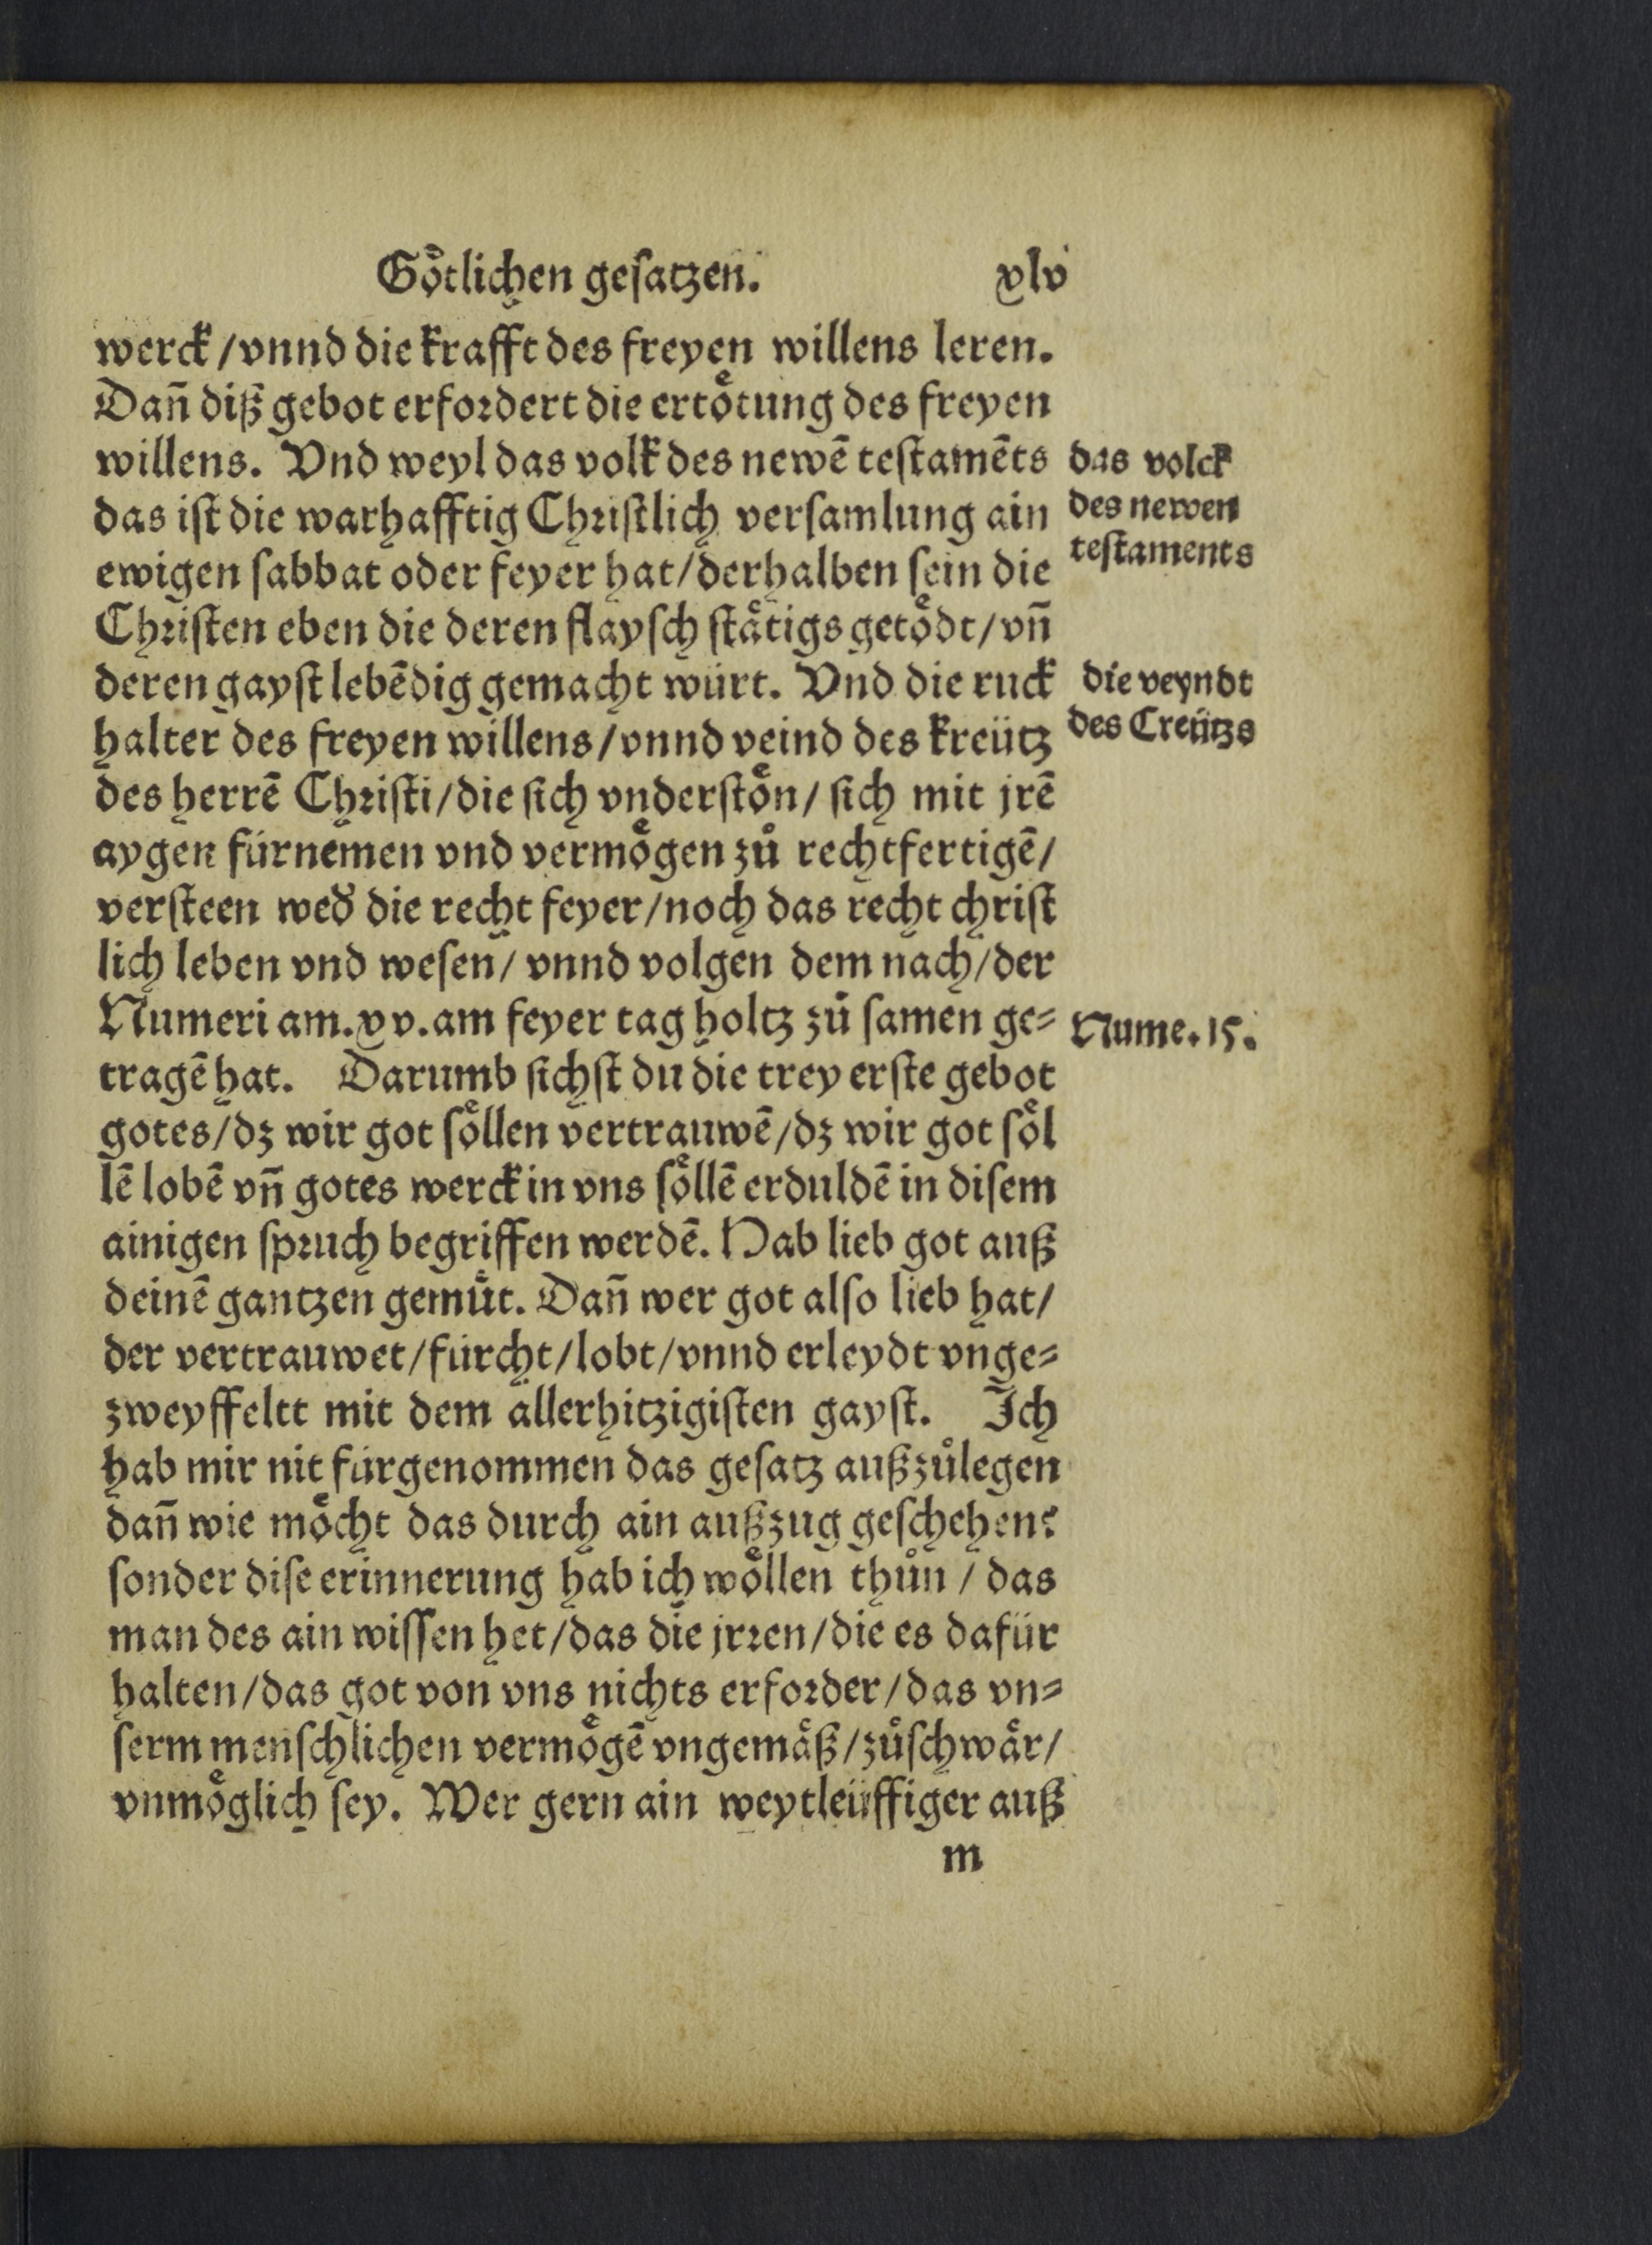 Goͤtlichen geſatzen. xlv
werck/vnnd die krafft des freyen willens leren.
Dañ diß gebot erfordert die ertoͤtung des freyen
willens. Vnd weyl das volk des newē teſtamēts
das volck
das iſt die warhafftig Chriſtlich verſamlung ain
des newen
ewigen ſabbat oder feyer hat/derhalben ſein die
teſtaments
Chriſten eben die deren flayſch ſtaͤtigs getoͤdt/vñ
deren gayſt lebēdig gemacht würt. Vnd die ruck
die veyndt
halter des freyen willens/vnnd veind des kreütz
des Creützs
des herrē Chriſti/die ſich vnderſtoͤn/ſich mit jrē
aygen fürnemen vnd vermoͤgen zuͦ rechtfertigē/
verſteen wed̕ die recht feyer/noch das recht chriſt
lich leben vnd weſen/vnnd volgen dem nach/der
Numeri am.xv.am feyer tag holtz zuͦ ſamen ge⸗
Nume.15.
tragē hat. Darumb ſichſt du die trey erſte gebot
gotes/dz wir got ſoͤllen vertrauwē/dz wir got ſoͤl
lē lobē vñ gotes werck in vns ſoͤllē erduldē in diſem
ainigen ſpruch begriffen werdē. Hab lieb got auß
deinē gantzen gemuͤt. Dañ wer got alſo lieb hat/
der vertrauwet/fürcht/lobt/vnnd erleydt vnge⸗
zweyffeltt mit dem allerhitzigiſten gayſt. Ich
hab mir nit fürgenommen das geſatz außzuͦlegen
dañ wie moͤcht das durch ain außzug geſchehen?
ſonder diſe erinnerung hab ich woͤllen thuͦn / das
man des ain wiſſen het/das die jrren/die es dafür
halten/das got von vns nichts erforder/das vn⸗
ſerm menſchlichen vermoͤgē vngemaͤß/zuͦſchwaͤr/
vnmoͤglich ſey. Wer gern ain weytleüffiger auß
m